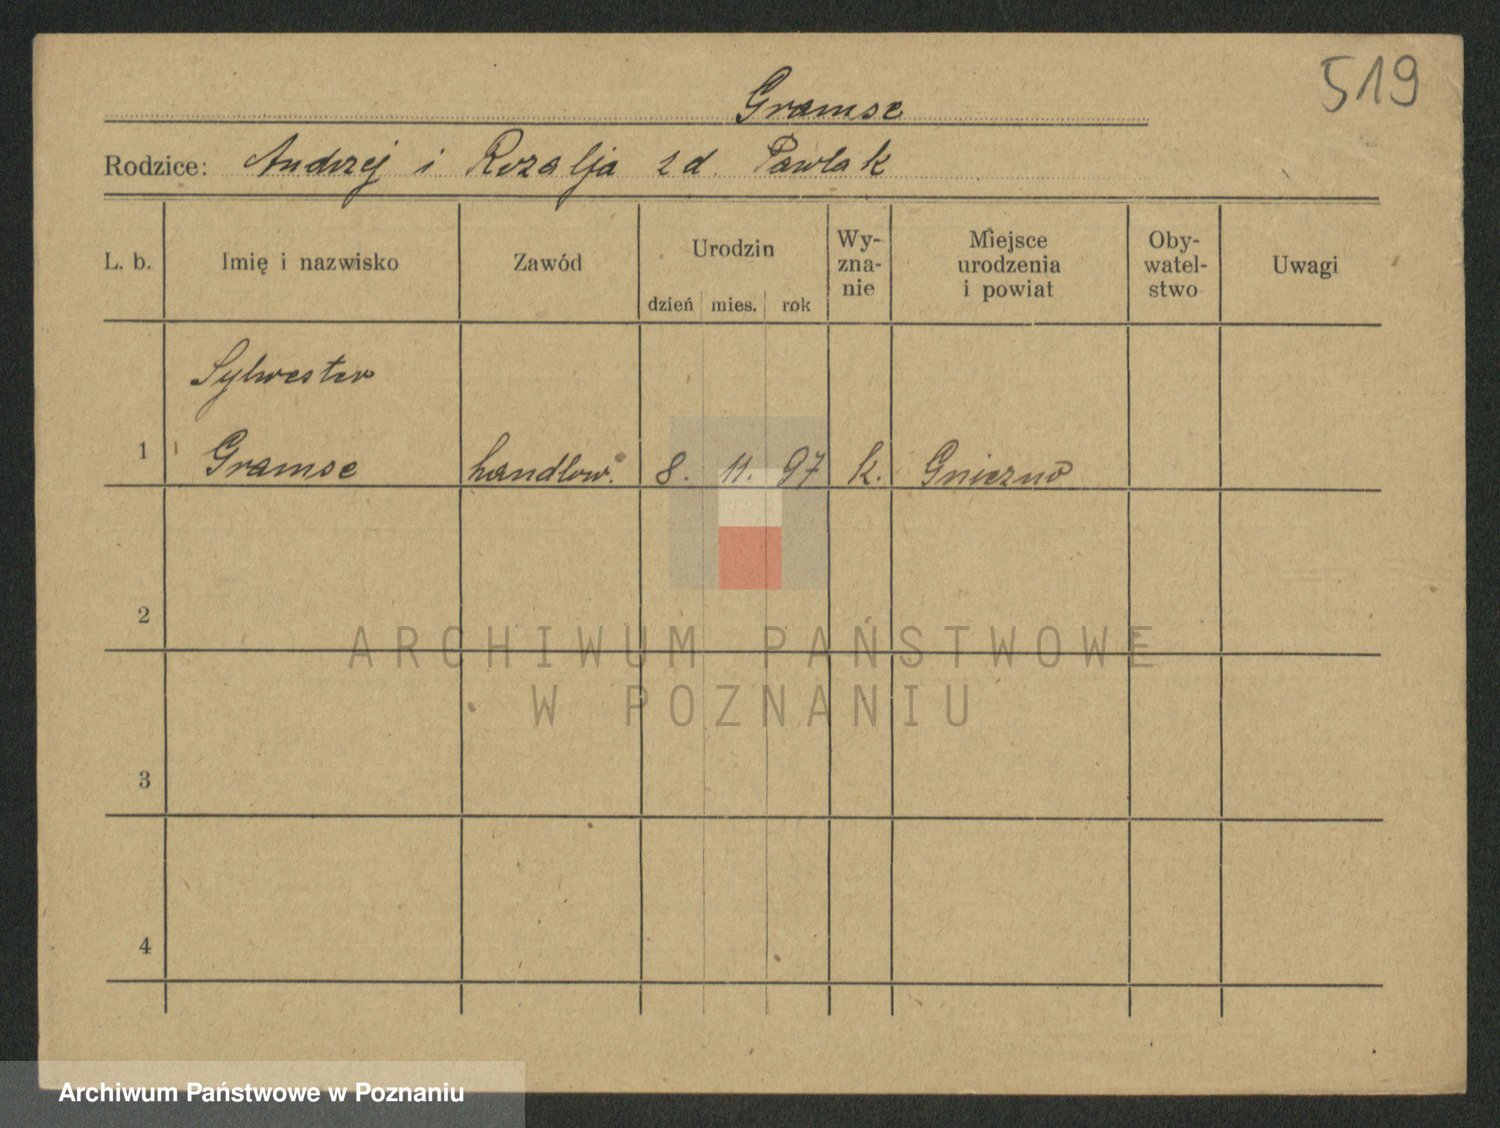 519
Gramse
Rodzice: Andrzej i Rozalja z d. Pawlak
L. b. Imię i nazwisko Zawód Urodzin dzień mies. rok Wy-zna-nie Miejsce urodzenia i powiat Oby-watel-stwo Uwagi
Sylwester
1 Gramse handlow. 8. 11. 97 k. Gniezno
2
ARCHIWUM PAŃSTWOWE
W POZNANIU
3
4
Archiwum Państwowe w Poznaniu